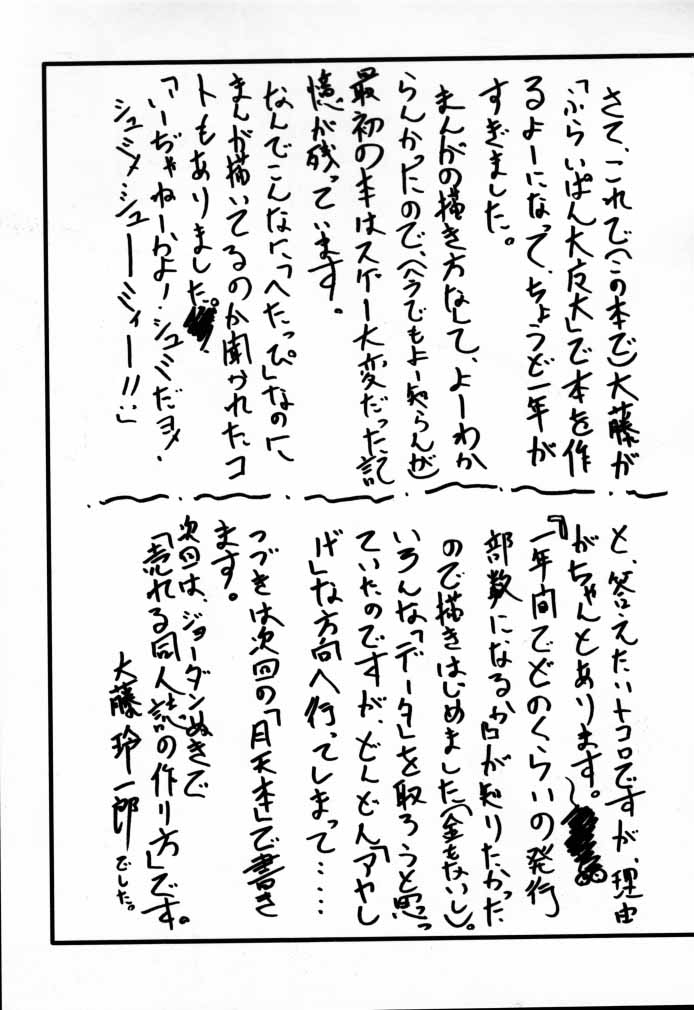 さて、これで(この本で)大藤が
「ふらいぱん大左大」で本を作
るよーになって、ちょうど一年が
すぎました。
まんがの描き方なして、よーわか
らんかったので、(今でもよー知らんが)
最初の本はスゲー大変だった記
憶が残っています。
なんでこんなに「へたっぴ」なのに、
まんが描いてるのか聞かれたコ
トもありました。
「いーぢゃねーかよ!シュミだヨ!
シュミ〆シューミィー!!」
と、答えたいトコロですが、理由
がちゃんとあります。
『一年間でどのくらいの発行
部数になるか』が知りたかった
ので描きはじめました(金もないし)。
いろんな「データ」を取ろうと思っ
ていたのですが、どんどん「アヤし
げ」な方向へ行ってしまって……
つづきは次回の「月天本」で書き
ます。
次回は、ジョーダンぬきで
「売れる同人誌の作り方」です。
大藤玲一郎でした。